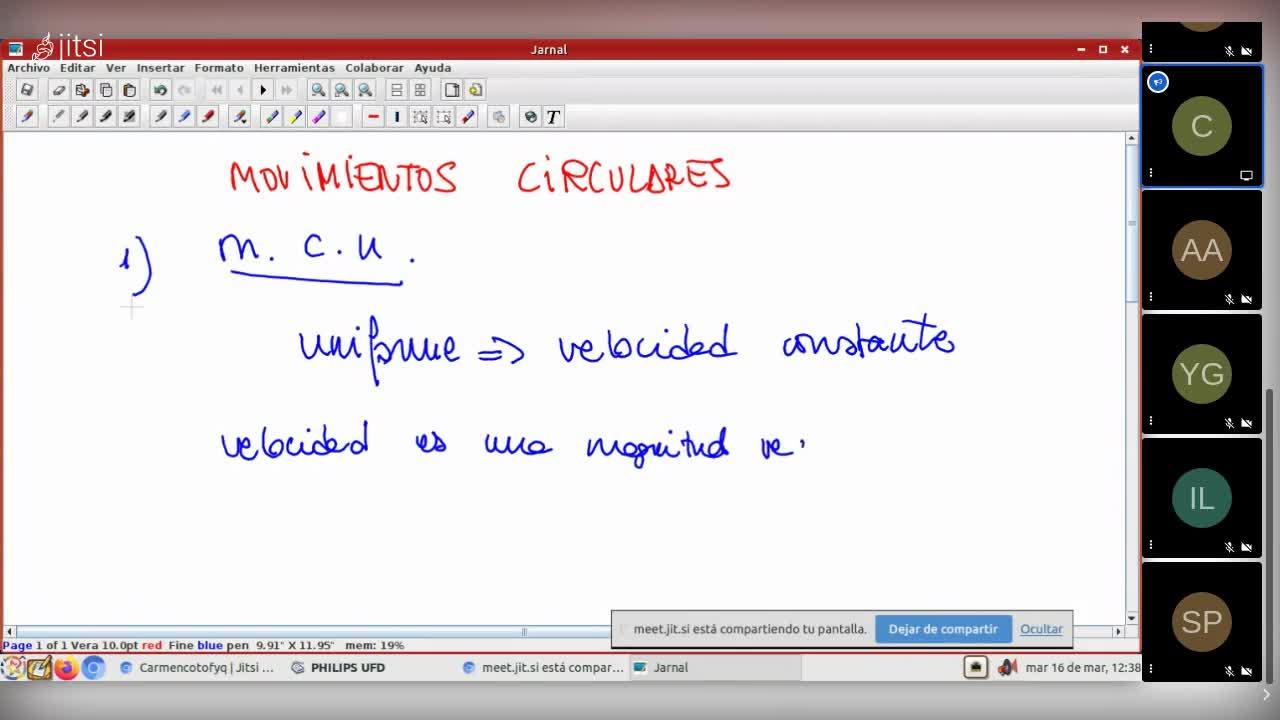 jitsi
Jarnal
Archivo Editar Ver Insertar Formato Herramientas Colaborar Ayuda
T
MOVIMIENTOS CIRCULARES
1) M. C. U.
uniforme => velocidad constante
velocidad es una magnitud ve
C
AA
YG
IL
SP
meet.jit.si está compartiendo tu pantalla. Dejar de compartir Ocultar
Page 1 of 1 Vera 10.0pt red Fine blue pen 9.91" X 11.95" mem: 19%
Carmencotofyq | Jitsi ... PHILIPS UFD meet.jit.si está compar... Jarnal mar 16 de mar, 12:38